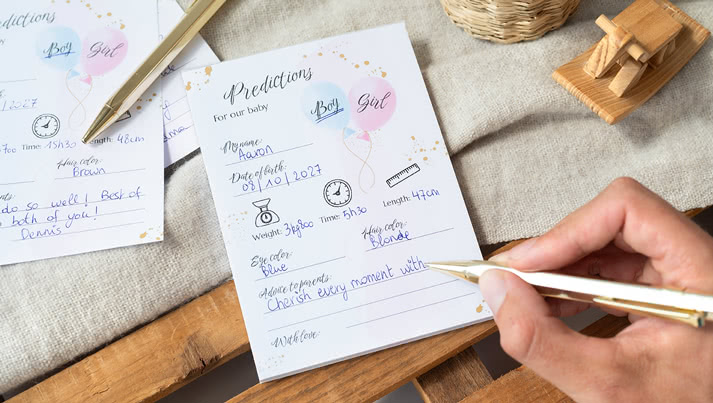 Predictions
Boy Girl
/2027
Time: 15h30 Length: 48cm
Hair color:
Brown
do so well! Best of
both of you!
Dennis
Predictions
For our baby
Boy Girl
My name:
Aaron
Date of birth:
08/10/2027
Weight: 3kg800 Time: 5h30 Length: 47cm
Eye color: Hair color:
Blue Blonde
Advice to parents:
Cherish every moment with
With love: